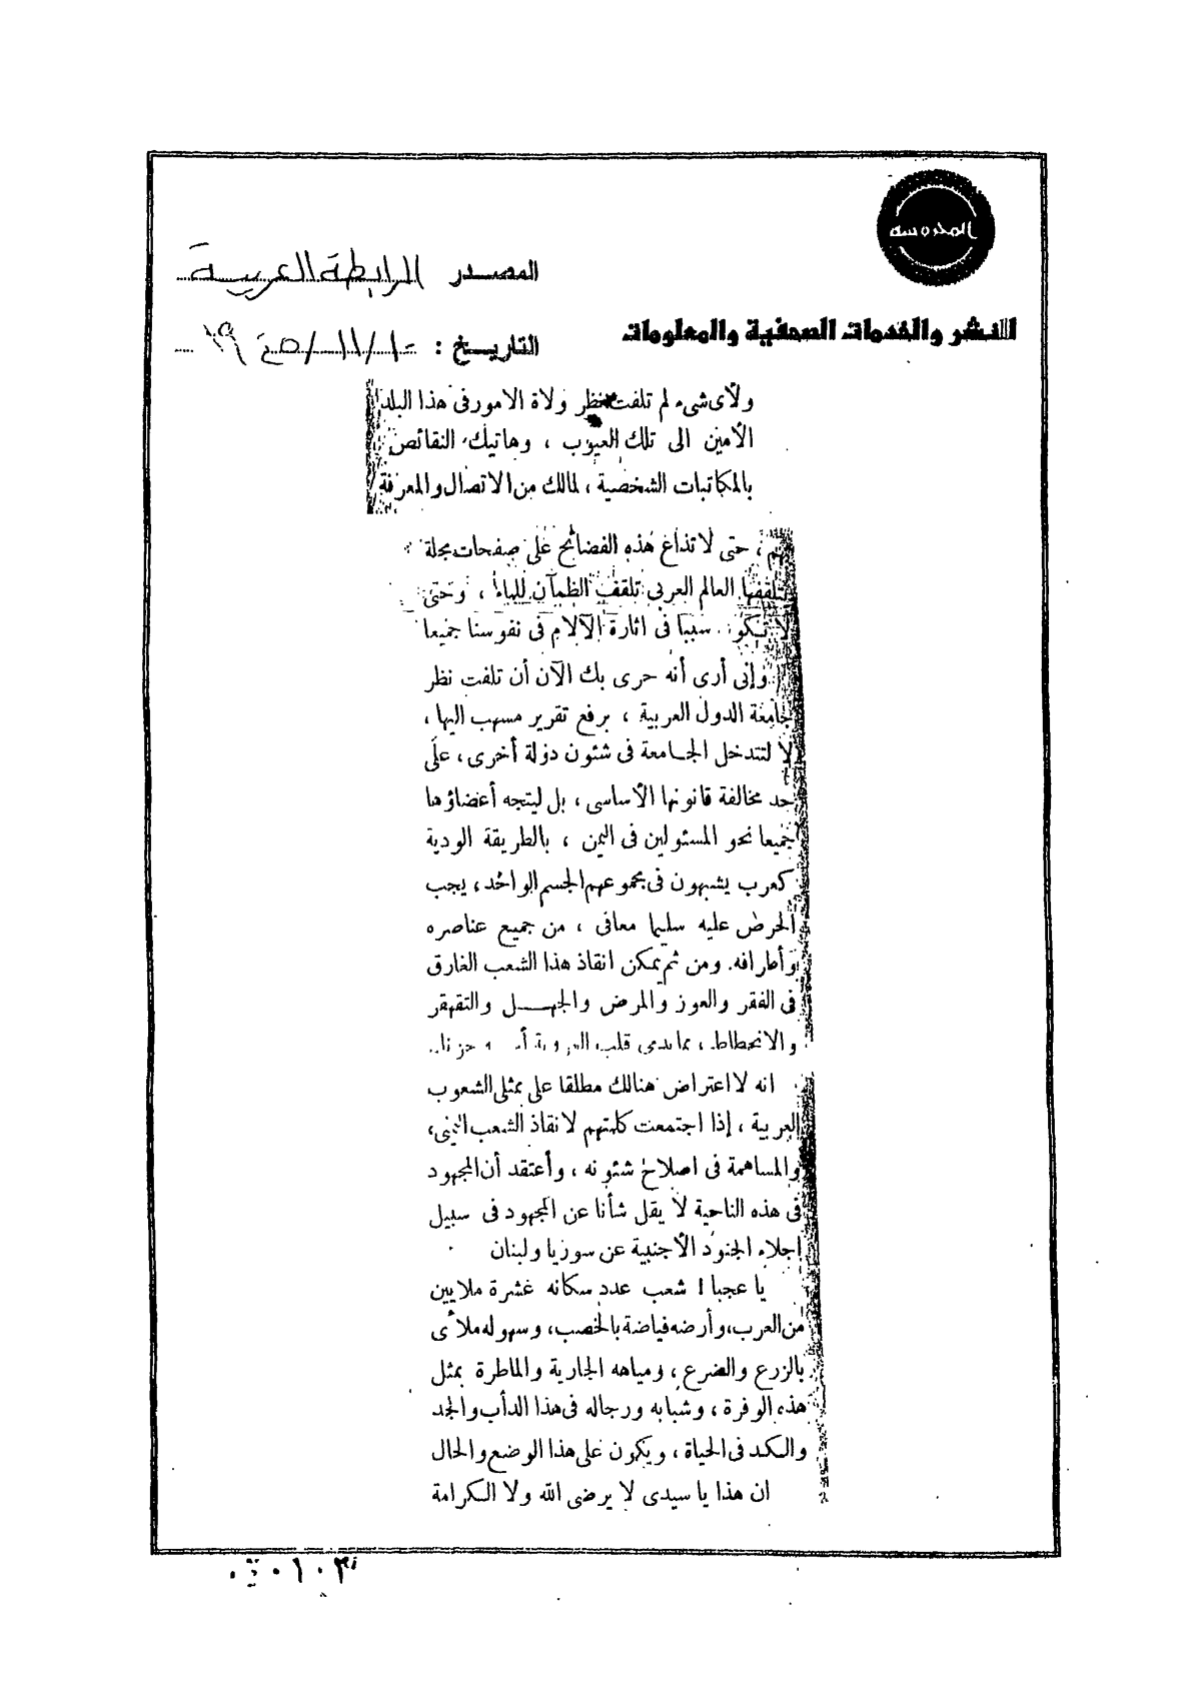 المحروسة
المصدر الرابطة العربية
للنشر والخدمات الصحفية والمعلومات
التاريخ :
ولأى شىء لم تلفت نظر ولاة الامور فى هذا البلد
الأمين الى تلك العيوب ، وهاتيك النقائص
بالمكاتبات الشخصية ، لمالك من الاتصال والمعرفة
بهم ، حتى لا تذاع هذه الفضائح على صفحات مجلة
يتلقفها العالم العربى تلقف الظمآن للماء ، وحتى
لا تكون سببا فى اثارة الآلام فى نفوسنا جميعا
وإنى أرى أنه حرى بك الآن أن تلفت نظر
جامعة الدول العربية ، برفع تقرير مسهب اليها ،
لا لتتدخل الجامعة فى شئون دولة أخرى ، على
حد مخالفة قانونها الأساسى ، بل ليتجه أعضاؤها
جميعا نحو المسئولين فى اليمن ، بالطريقة الودية
كعرب يشبهون فى مجموعهم الجسم الواحد ، يجب
الحرص عليه سليما معافى ، من جميع عناصره
وأطرافه. ومن ثم يمكن انقاذ هذا الشعب الغارق
فى الفقر والعوز والمرض والجهل والتقهقر
والانحطاط ، مما يدمى قلب
انه لا اعتراض هنالك مطلقا على ممثلى الشعوب
العربية ، إذا اجتمعت كلمتهم لانقاذ الشعب اليمنى ،
والمساهمة فى اصلاح شئونه ، وأعتقد أن المجهود
فى هذه الناحية لا يقل شأنا عن المجهود فى سبيل
اجلاء الجنود الأجنبية عن سوريا ولبنان
يا عجبا ! شعب عدد سكانه عشرة ملايين
من العرب ، وأرضه فياضة بالخصب ، وسهوله ملأى
بالزرع والضرع ، ومياهه الجارية والماطرة بمثل
هذه الوفرة ، وشبابه ورجاله فى هذا الدأب والجد
والكد فى الحياة ، ويكون على هذا الوضع والحال
ان هذا يا سيدى لا يرضى الله ولا الكرامة